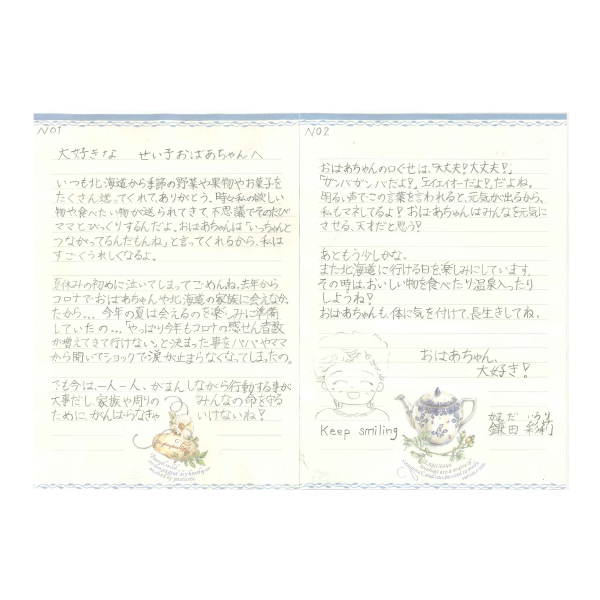 NO1
大好きな せい子おばあちゃんへ
いつも北海道から季節の野菜や果物やお菓子を
たくさん送ってくれて、ありがとう。時々私の欲しい
物や食べたい物が送られてきて、不思議でそのたび
ママとびっくりするんだよ。おばあちゃんは「いっちゃんと
つながってるんだもんね」と言ってくれるから、私は
すごくうれしくなるよ。
夏休みの初めに泣いてしまってごめんね。去年から
コロナでおばあちゃんや北海道の家族に会えなか
ったから...今年の夏は会えるのを楽しみに準備
していたの...「やっぱり今年もコロナの感せん者数
が増えてきて行けない」と決まった事をパパやママ
から聞いてショックで涙が止まらなくなってしまったの。
でも今は、一人一人、がまんしながら行動する事が
大事だし、家族や周りのみんなの命を守る
ためにがんばらなきゃいけないね!
NO2
おばあちゃんの口ぐせは、「大丈夫!大丈夫!」
「ガンバガンバだよ!」「エイエイオーだよ!」だよね。
明るい声でこの言葉を言われると、元気が出るから、
私もマネしてるよ!おばあちゃんはみんなを元気に
させる、天才だと思う!
あともう少しかな。
また北海道に行ける日を楽しみにしています。
その時は、おいしい物を食べたり温泉入ったり
しようね!
おばあちゃんも、体に気を付けて、長生きしてね。
おばあちゃん、
大好き!
Keep smiling
かまだ いろり
鎌田 彩莉